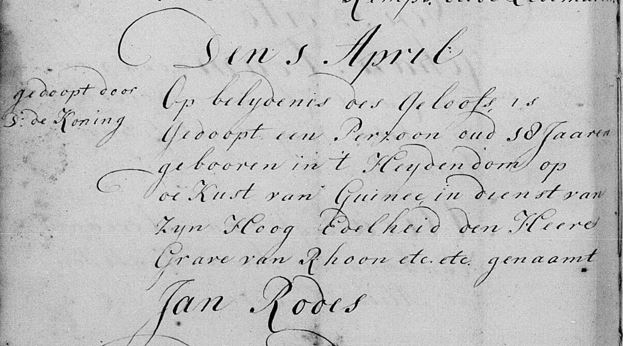 Den 1 April
gedoopt door
S: de Koning
Op belydenis des Geloofs is
Gedoopt een Perzoon oud 18 Jaaren
gebooren in 't Heydendom op
de Kust van Guinee in dienst van
Zyn Hoog Edelheid den Heere
Grave van Rhoon etc. etc. genaamt
Jan Rodes